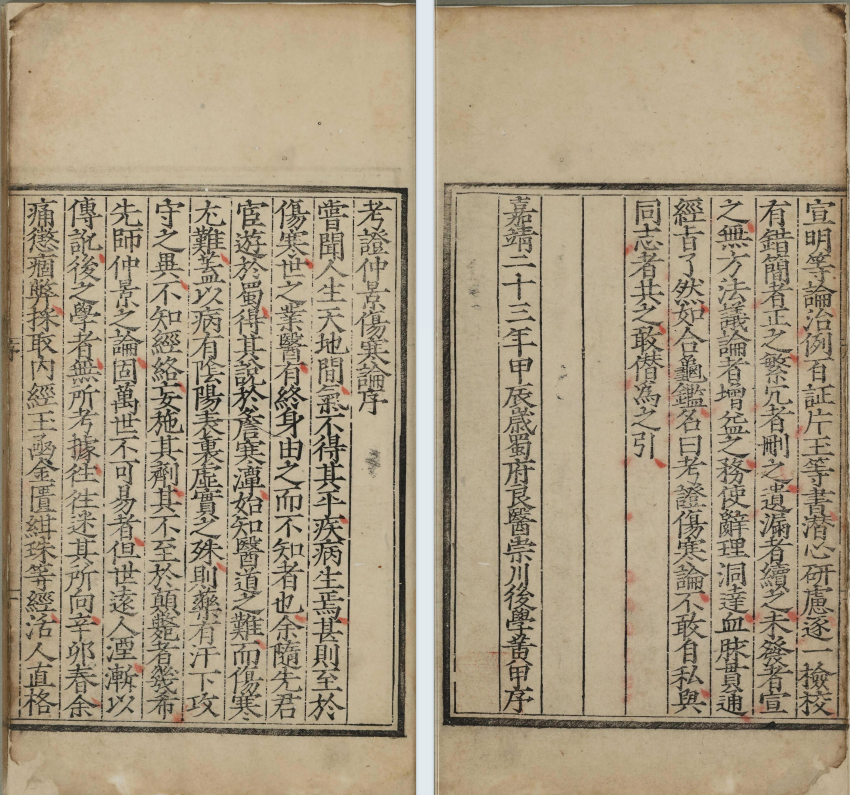 考證仲景傷寒論序
嘗聞人生天地間氣不得其平疾病生焉甚則至於
傷寒世之業醫有終身由之而不知者也余隨先君
宦遊於蜀得其說於詹寒潭始知醫道之難而傷寒
尤難葢以病有陰陽表裏虛實之殊則藥有汗下攻
守之異不知經絡妄施其劑其不至於顛斃者幾希
先師仲景之論固萬世不可易者但世遠人湮漸以
傳訛後之學者無所考據徃徃迷其所向辛卯春余
痛懲痼弊採取內經王函金匱紺珠等經活人直格
宣明等論治例百証片王等書潜心研慮逐一檢校
有錯簡者正之繁冗者刪之遺漏者續之未發者宣
之無方法議論者增益之務使辭理洞達血脉貫通
經旨了然妙合龜鑑名曰考證傷寒論不敢自私與
同志者共之敢僣爲之引
嘉靖二十三年甲辰歲蜀府良醫崇川後學黄甲序